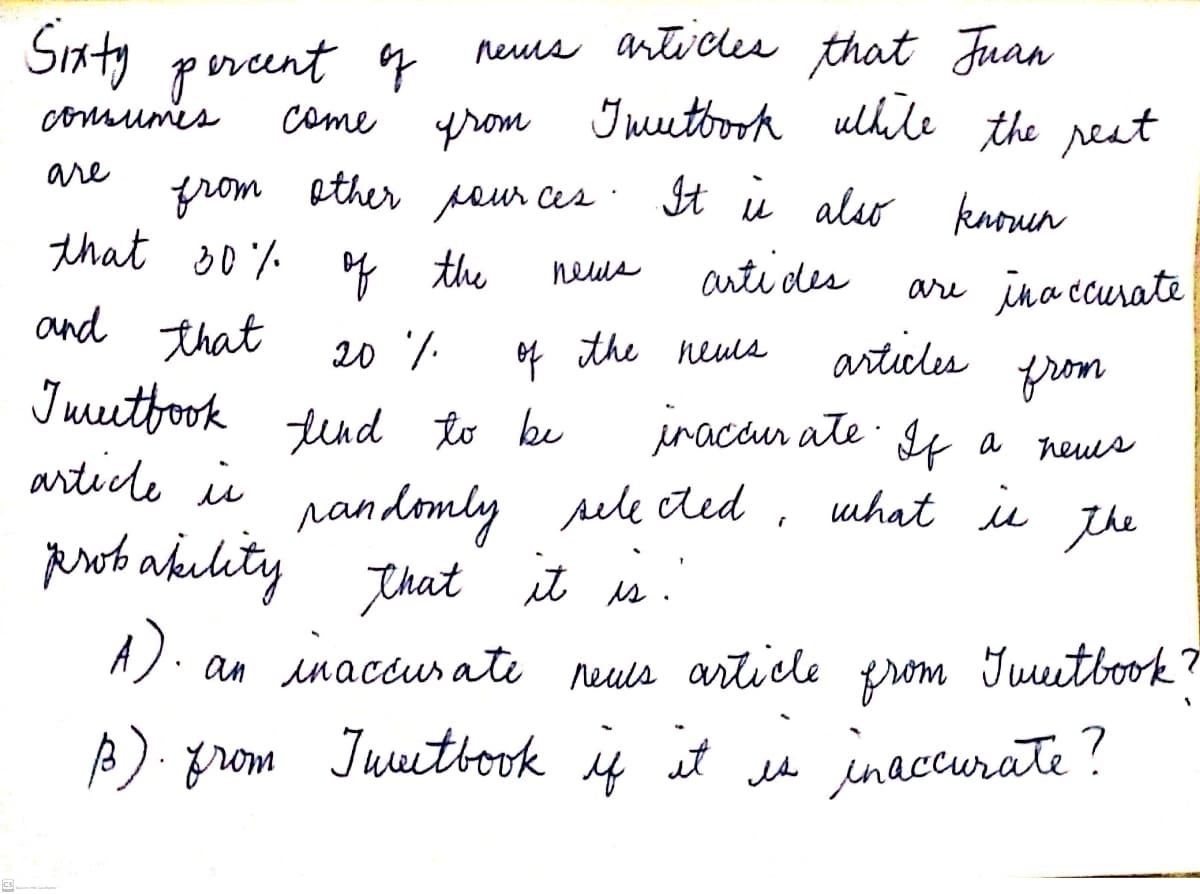 Sixty percent of news articles that Juan
consumes come from Tweetbook while the rest
are from other sources. It is also known
that 30% of the news articles are inaccurate
and that 20% of the news articles from
Tweetbook tend to be inaccurate. If a news
article is randomly selected, what is the
probability that it is:
A). an inaccurate news article from Tweetbook?
B). from Tweetbook if it is inaccurate?
CS